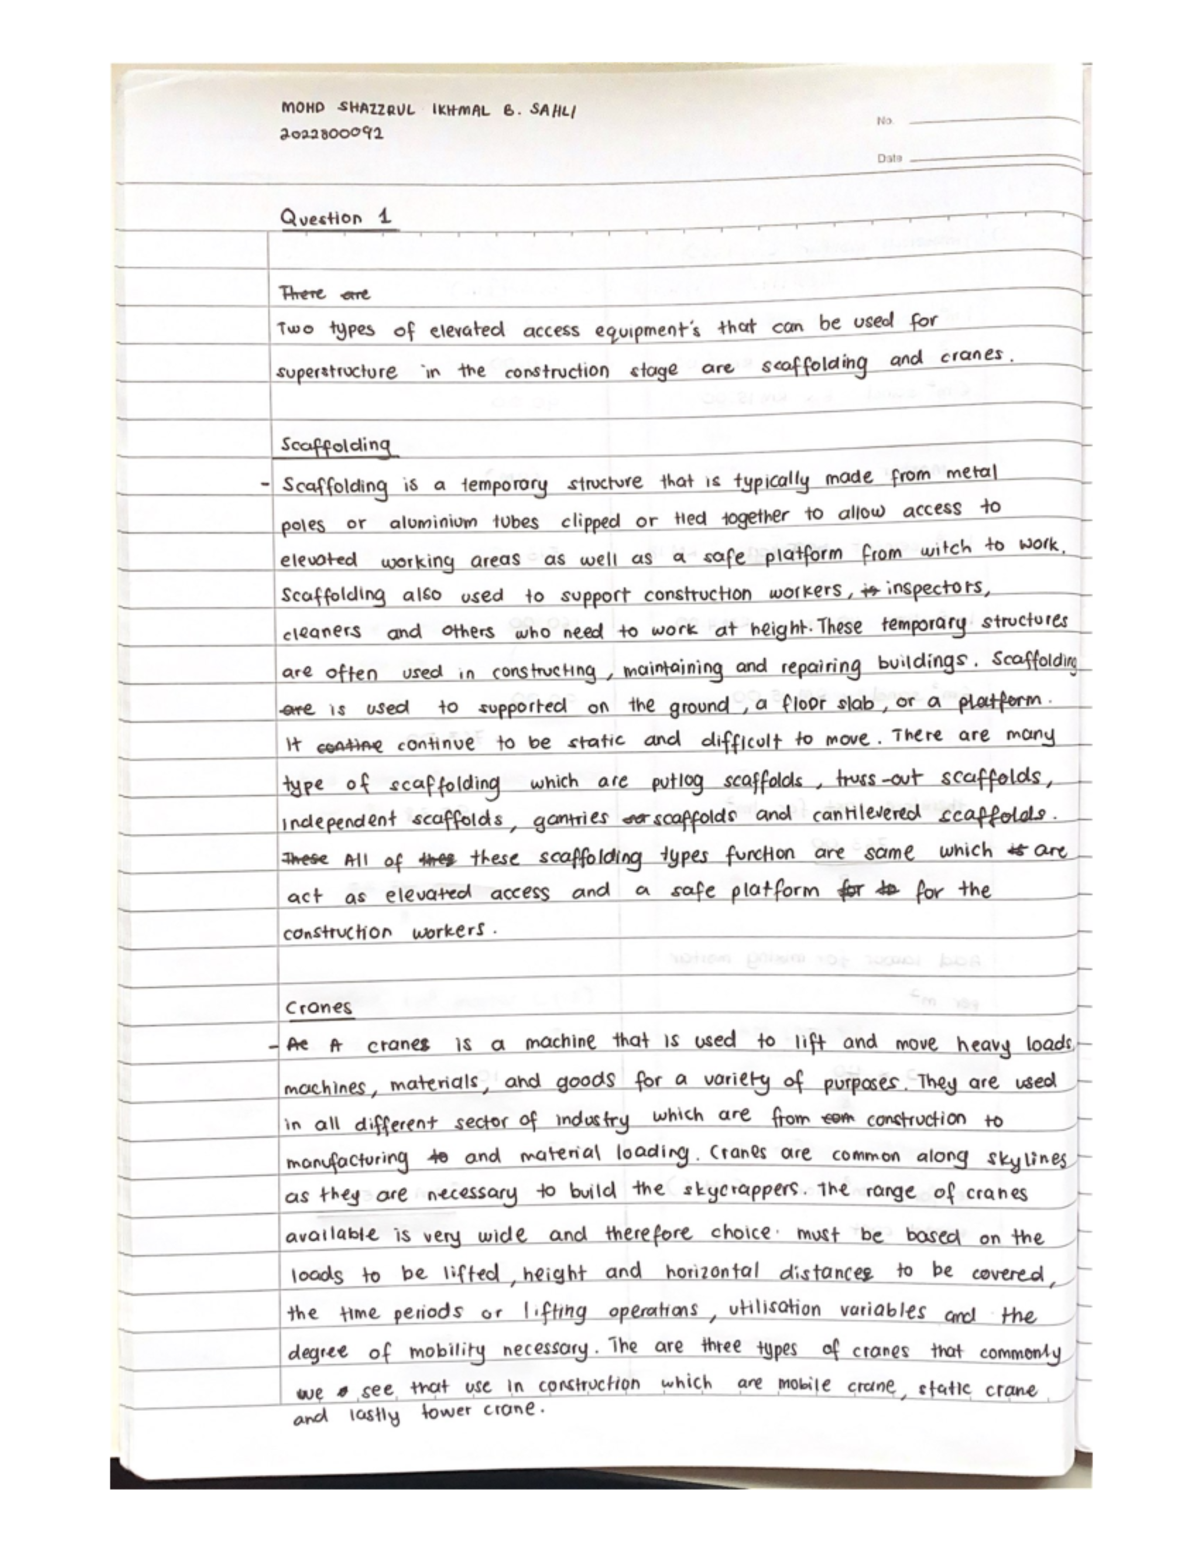 MOHD SHAZZRUL IKHMAL B. SAHLI
2022800092
No.
Date
Question 1
There are
Two types of elevated access equipment's that can be used for
superstructure in the construction stage are scaffolding and cranes.
Scaffolding
- Scaffolding is a temporary structure that is typically made from metal
poles or aluminium tubes clipped or tied together to allow access to
elevated working areas as well as a safe platform from witch to work.
Scaffolding also used to support construction workers, is inspectors,
cleaners and others who need to work at height. These temporary structures
are often used in constructing, maintaining and repairing buildings. Scaffolding
are is used to supported on the ground, a floor slab, or a platform.
It contine continue to be static and difficult to move. There are many
type of scaffolding which are putlog scaffolds, truss-out scaffolds,
independent scaffolds, gantries scaffolds and cantilevered scaffolds.
These All of thes these scaffolding types function are same which is are
act as elevated access and a safe platform for to for the
construction workers.
Cranes
- Ac A cranes is a machine that is used to lift and move heavy loads,
machines, materials, and goods for a variety of purposes. They are used
in all different sector of industry which are from com construction to
manufacturing to and material loading. Cranes are common along skylines
as they are necessary to build the skycrappers. The range of cranes
available is very wide and therefore choice must be based on the
loads to be lifted, height and horizontal distances to be covered,
the time periods or lifting operations, utilisation variables and the
degree of mobility necessary. The are three types of cranes that commonly
we see that use in construction which are mobile crane, static crane
and lastly tower crane.